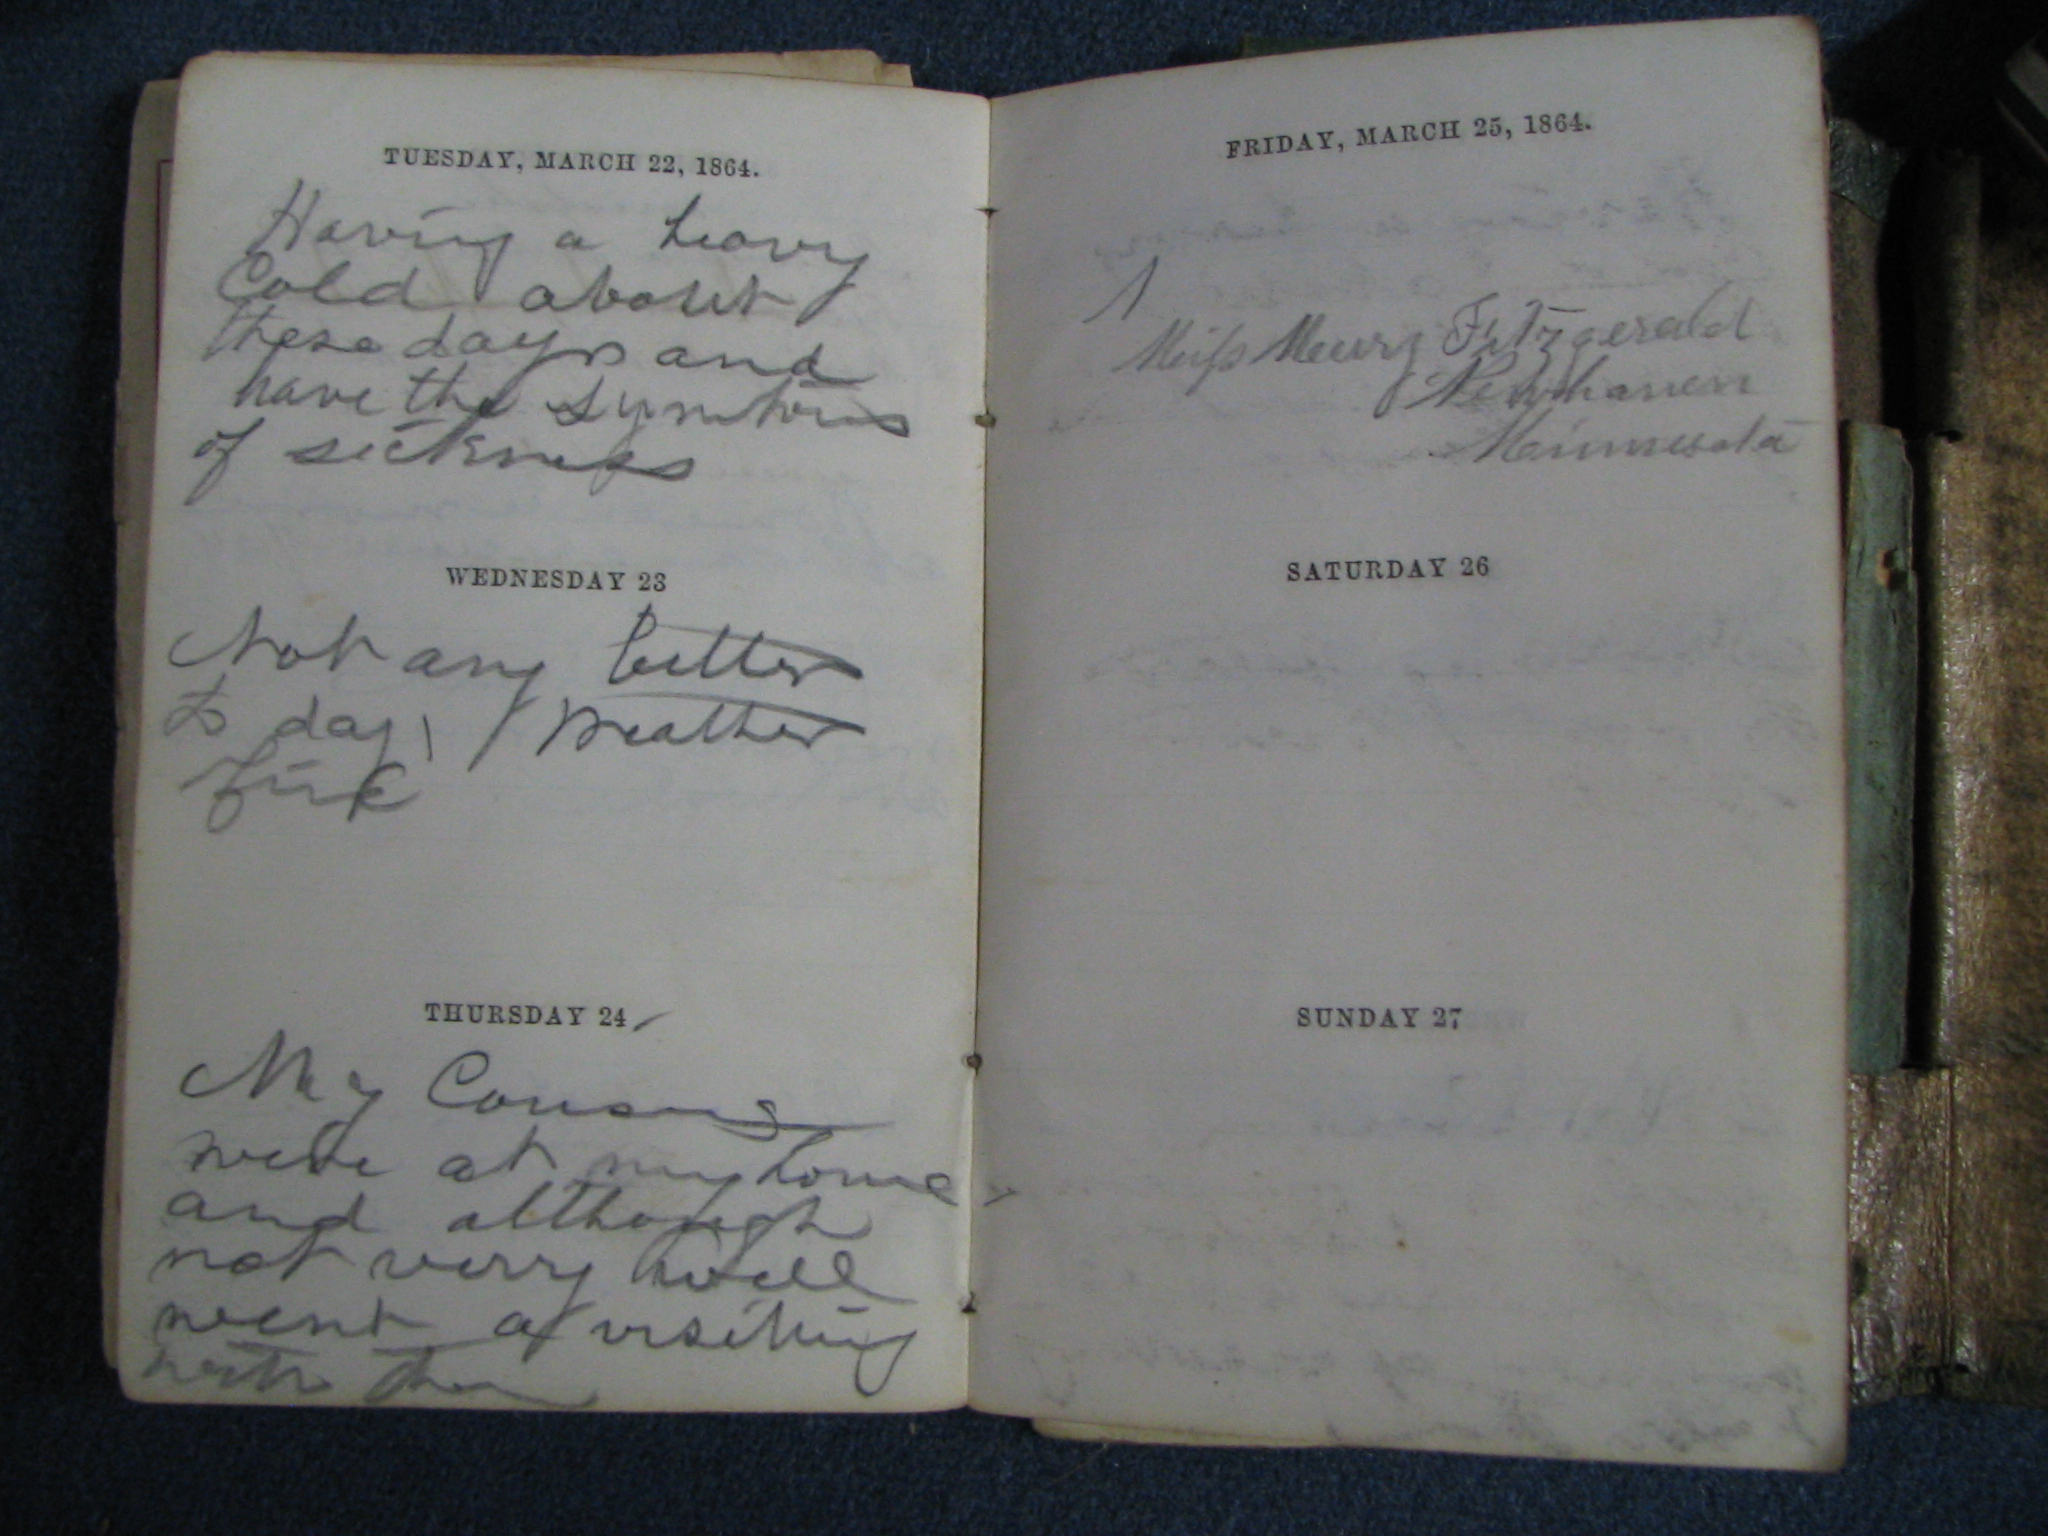 TUESDAY, MARCH 22, 1864.
Having a heavy
Cold about
these days and
have the symtoms
of sickness
WEDNESDAY 23
Not any better
to day, / Weather
fine
THURSDAY 24
My Cousins
were at my home
and although
not verry well
went a visiting
with them
FRIDAY, MARCH 25, 1864.
Miss Mary Fitzgerald
Newhaven
Minnesota
SATURDAY 26
SUNDAY 27